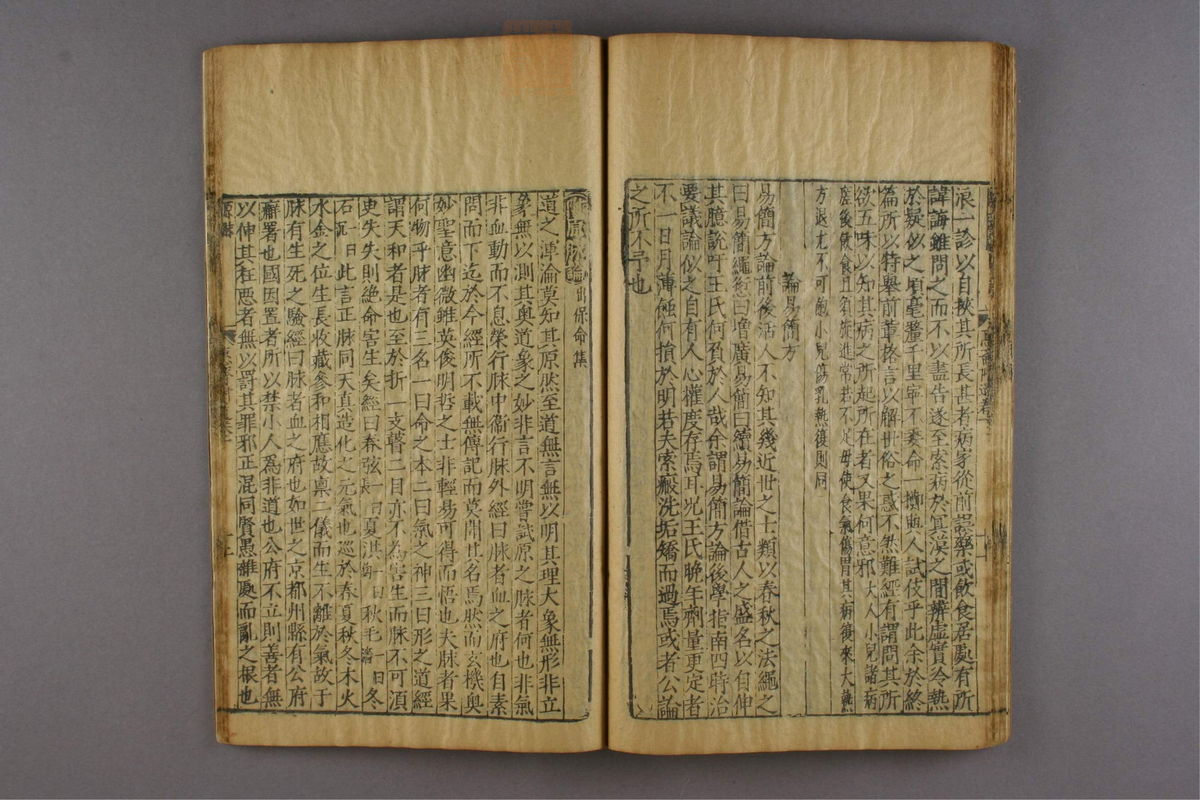 浪一診以自挾其所長甚者病家從前誤藥或飲食居處有所
諱誨雖問之而不以盡告遂至索病於冥漠之間辨虛實冷熱
於疑似之頃毫釐千里寧不悞命一擲與人試伎乎此余於終
篇所以特舉前輩格言以解世俗之惑不然難經有謂問其所
欲五味以知其病之所起所在者又果何意邪大人小兒諸病
瘥後飲食且須旋進常若不足毋使食氣傷胃其病後來大熱
方退尤不可飽小兒傷乳熱復則同
論易簡方
易簡方論前後活人不知其幾近世之士類以春秋之法繩之
曰易簡繩愆曰增廣易簡曰續易簡論借古人之盛名以自伸
其臆說吁王氏何負於人哉余謂易簡方論後學指南四時治
要議論似之自有人心權度存焉耳況王氏晚年劑量更定者
不一日月薄蝕何損於明若夫索瘢洗垢矯而過焉或者公論
之所不予也
原脉論出保命集
道之渾淪莫知其原然至道無言無以明其理大象無形非立
象無以測其奧道象之妙非言不明嘗試原之脉者何也非氣
非血動而不息榮行脉中衛行脉外經曰脉者血之府也自素
問而下迄於今經所不載無傳記而莫聞其名焉然而玄機奧
妙聖意幽微雖英俊明哲之士非輕易可得而悟也夫脉者果
何物乎脉者有三名一曰命之本二曰氣之神三曰形之道經
謂天和者是也至於折一支瞽二目亦不為害生而脉不可須
更失失則絶命害生矣經曰春弦一曰長夏洪一曰鉤秋毛一曰濇冬
石一曰沉此言正脉同天真造化之元氣也巡於春夏秋冬木火
水金之位生長收藏參和相應故稟二儀而生不離於氣故于
脉有生死之驗經曰脉者血之府也如世之京都州縣有公府
廨署也國因置者所以禁小人為非道也公府不立則善者無
以伸其枉惡者無以罰其罪邪正混同賢愚雜處而亂之根也